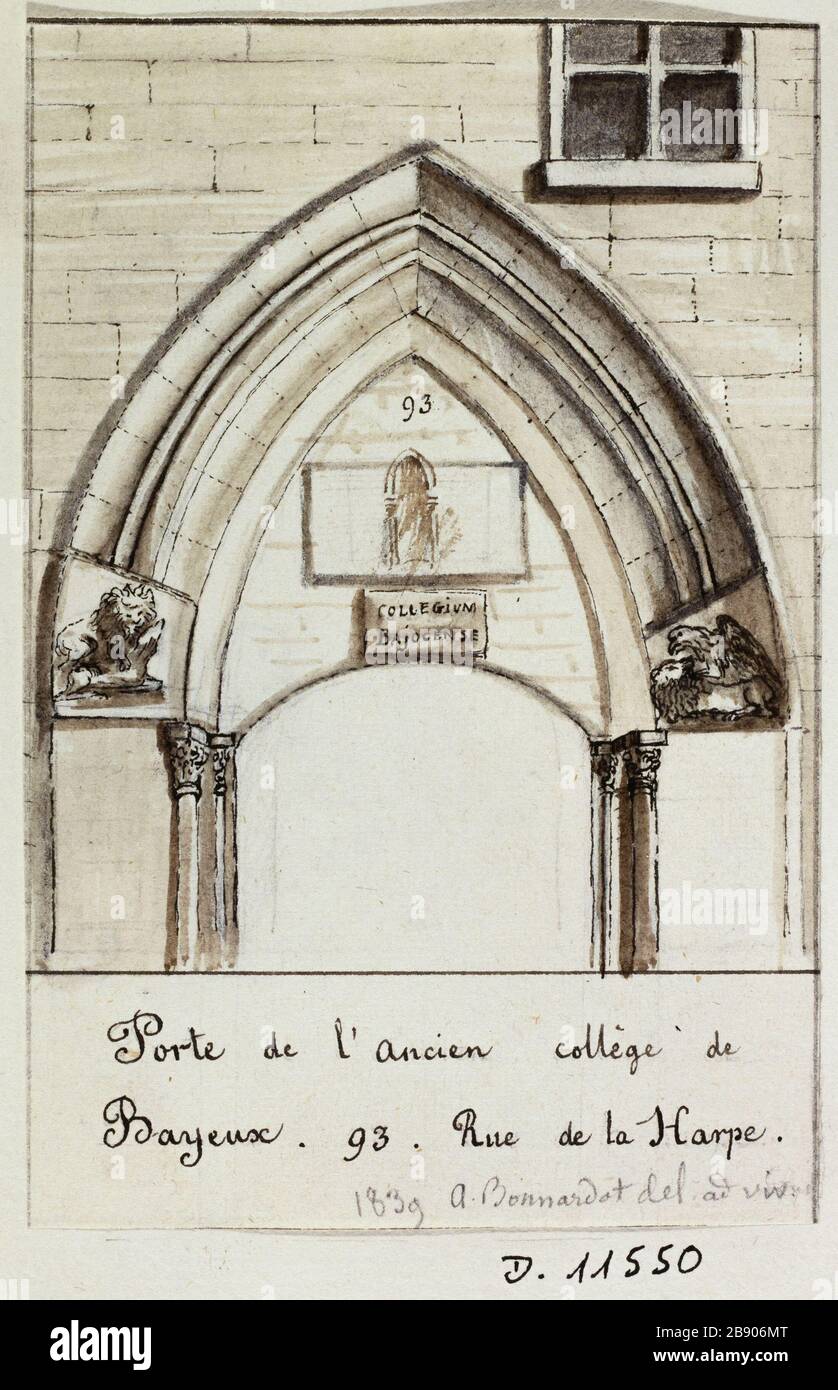 93
COLLEGIVM
BAJOCENSE
Porte de l'ancien collège de
Bayeux. 93. Rue de la Harpe.
1839 A. Bonnardot del. ad vivum
D. 11550
alamy
Image ID: 2B906MT
www.alamy.com